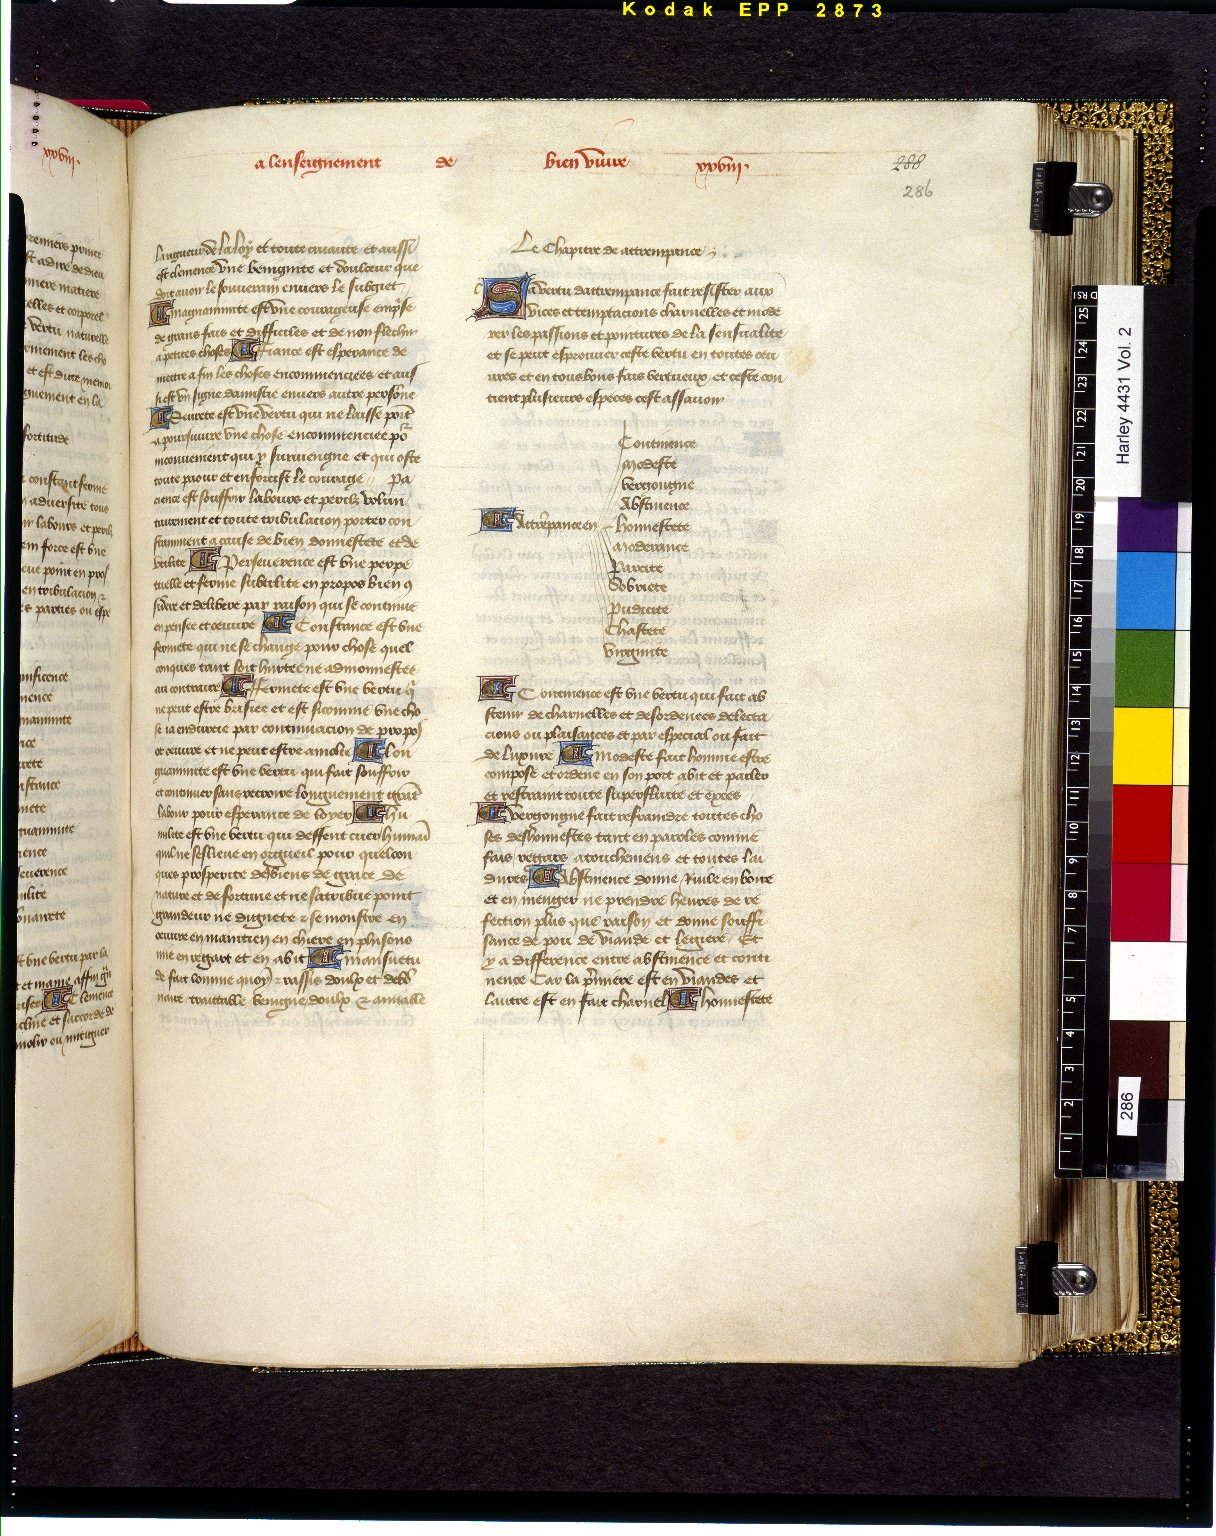 Kodak EPP 2873
a lenseignement de bien vivre xxviii.
288
286
xxviii.
la rigueur de la loy et toute cruaute et aussi
est clemence une benignite et doulceur que
doit avoir le souverain envers le subgiet
magnanimite est une courageuse emprise
de grans fais et difficiles et de non flechir
a petites choses Fiance est esperance de
mettre a fin les choses encommenciees et aus
si est un signe damistie envers autre personne
Seurete est une vertu qui ne laisse point
a poursuivre une chose encommenciee por
inconvenient qui y surviengne et qui oste
toute paour et enforcist le courage Pa
cience est souffrir labours et perilz volun
tairement et toute tribulacion porter con
stamment a cause de bien donnestete et de
utilite Perseverence est une perpe
tuelle et ferme stabilite en propos bien con
sidere et delibere par raison qui se continue
en pensee et oeuvre Constance est une
fermete qui ne se change pour chose quel
conques tant soit hurtee ne admonnestee
au contraire Fermete est une vertu qui
ne peut estre brisiee et est si comme une cho
se ia endurcie par continuacion de propos
et oeuvre et ne peut estre amolie Lon
guanimite est une vertu qui fait souffrir
et continuer sans recroire longuement grant
labour pour esperance de loyer Hu
milite est une vertu qui deffent cuer humain
quil ne seslieve en orgueil pour quelcon
ques prosperite de biens de grace de
nature et de fortune et ne satribue point
grandeur ne dignete et se monstre en
oeuvre en maintien en chiere en phisono
mie en regart et en abit mansuetu
de fait lomme quoy et rassis doulx et debo
naire traittable benigne doulx et amiable
Le Chapitre de attrempance
La vertu dattrempance fait resister aux
vices et temptacions charnelles et mode
rer les passions et pointures de la sensualite
et se peut esprouver ceste vertu en toutes oeu
vres et en tous bons fais vertueux et ceste con
tient plusieurs especes cest assavoir
Continence
Modeste
Vergongne
Abstinence
Attrempance en Honnestete
Moderance
Parcite
Sobriete
Pudicite
Chastete
Virginite
Continence est une vertu qui fait ab
stenir de charnelles et desordenees delecta
cions ou plaisances et par especial ou fait
de luxure Modeste fait homme estre
compose et ordene en son port abit et parler
et restraint toute superfluite et exces
Vergongne fait refraindre toutes cho
ses deshonnestes tant en paroles comme
fais regars atouchemens et toutes lai
dures Abstinence donne riule en boire
et en menger ne prendre heures de re
fection plus que raison et donne souffi
sance de pou de viande et legiere Et
y a difference entre abstinence et conti
nence Car la premiere est en viandes et
lautre est en fait charnel Honnestete
Harley 4431 Vol. 2
286